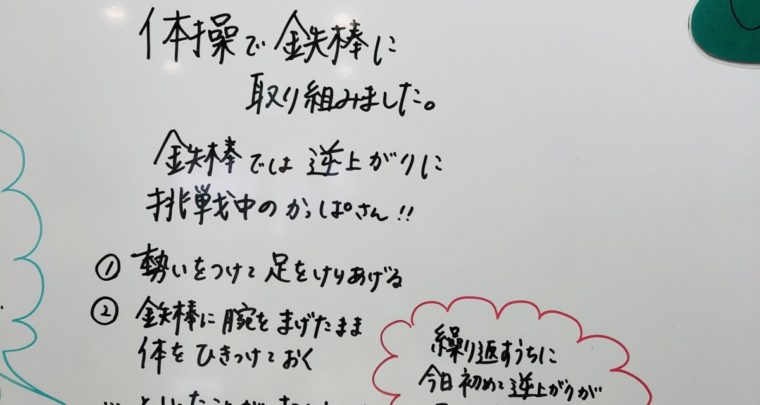 体操で鉄棒に
取り組みました。
鉄棒では逆上がりに
挑戦中のかっぱさん!!
① 勢いをつけて足をけりあげる
② 鉄棒に腕をまげたまま
体をひきつけておく
繰り返すうちに
今日初めて逆上がりが